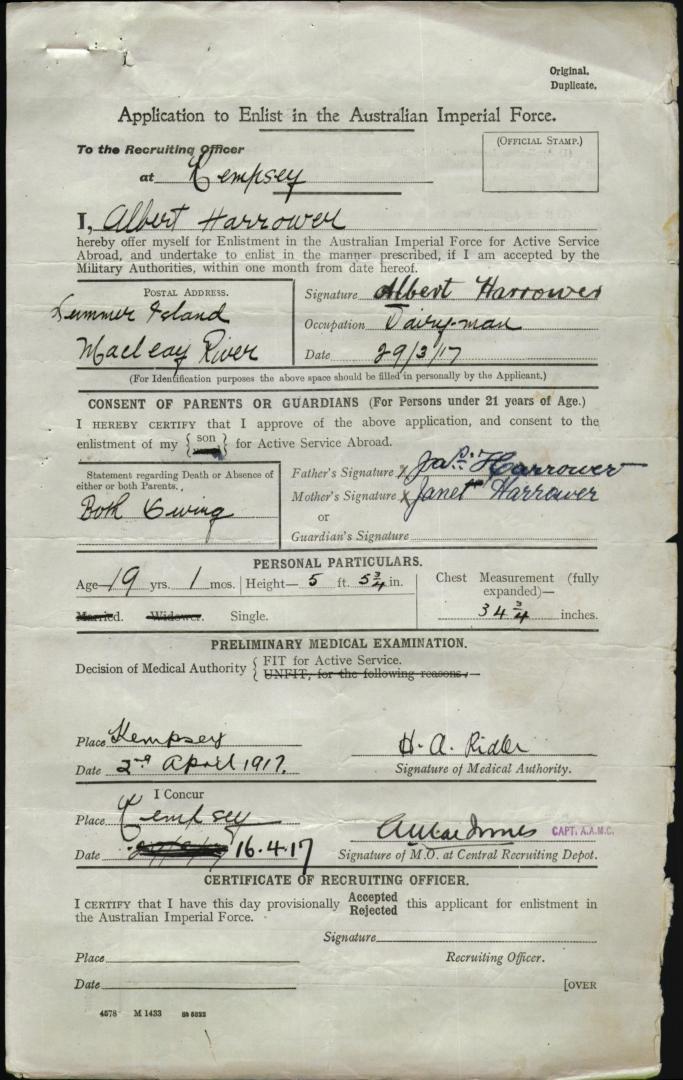 Original.
Duplicate.
Application to Enlist in the Australian Imperial Force.
To the Recruiting Officer
(OFFICIAL STAMP.)
at Kempsey
I, Albert Harrower
hereby offer myself for Enlistment in the Australian Imperial Force for Active Service
Abroad, and undertake to enlist in the manner prescribed, if I am accepted by the
Military Authorities, within one month from date hereof.
POSTAL ADDRESS.
Summer Island
Macleay River
Signature Albert Harrower
Occupation Dairy-man
Date 29/3/17
(For Identification purposes the above space should be filled in personally by the Applicant.)
CONSENT OF PARENTS OR GUARDIANS (For Persons under 21 years of Age.)
I HEREBY CERTIFY that I approve of the above application, and consent to the
enlistment of my { son } for Active Service Abroad.
Statement regarding Death or Absence of
either or both Parents.
Both Living
Father's Signature x Jas. Harrower
Mother's Signature x Janet Harrower
or
Guardian's Signature
PERSONAL PARTICULARS.
Age 19 yrs. 1 mos. Height— 5 ft. 5¾ in.
Chest Measurement (fully
expanded)—
34¾ inches.
Married. Widower. Single.
PRELIMINARY MEDICAL EXAMINATION.
Decision of Medical Authority { FIT for Active Service.
UNFIT, for the following reasons,—
Place Kempsey
Date 2nd April 1917.
H. A. Ridler
Signature of Medical Authority.
I Concur
Place Kempsey
Date 16.4.17
CAPT. A.A.M.C.
Signature of M.O. at Central Recruiting Depot.
CERTIFICATE OF RECRUITING OFFICER.
I CERTIFY that I have this day provisionally Accepted
Rejected this applicant for enlistment in
the Australian Imperial Force.
Signature
Place
Recruiting Officer.
Date
[OVER
4578 M 1433